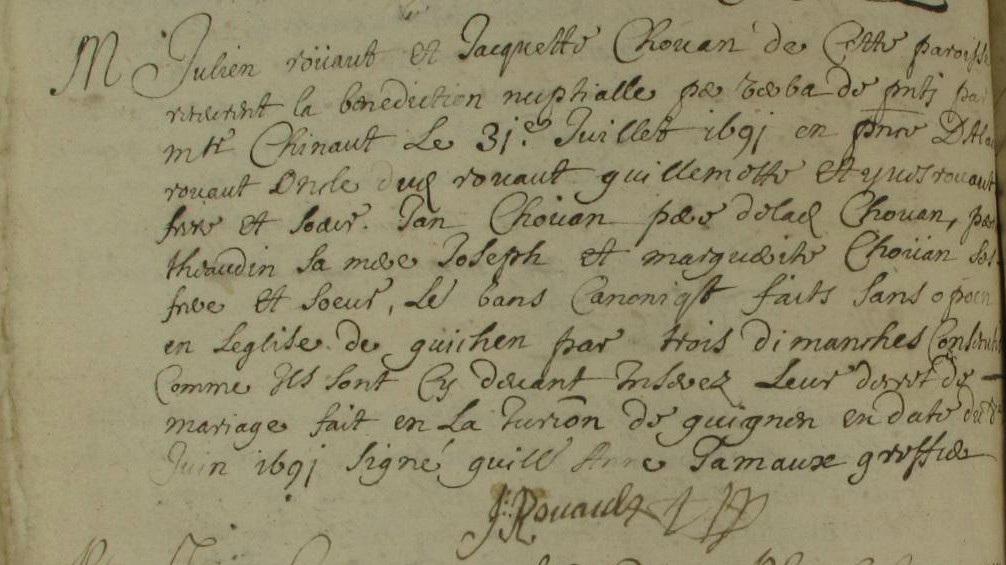 M Julien roüaut et Jacquette Choüan de Cette paroisse
recurent la benediction nuptialle p̄ verba de pnti par
mtre Chinaut Le 31ie Juillet 1691 en pnce
rouaut Oncle dud rouaut guillemette et yues rouaut
frere et soeur. Jan Choüan pere de lad Choüan,
theaudin sa mere Joseph et marguerite Choüan ses
frere et soeur, Les bans Canoniqt faits sans opoon
en Leglise de guichen par trois dimanches Consecutifs
Comme Ils sont Cy deuant Inserez Leur decret de
mariage fait en La Jurion de guignen en date du
Juin 1691 signé guill Anne Jamaux greffier
J: Rouault